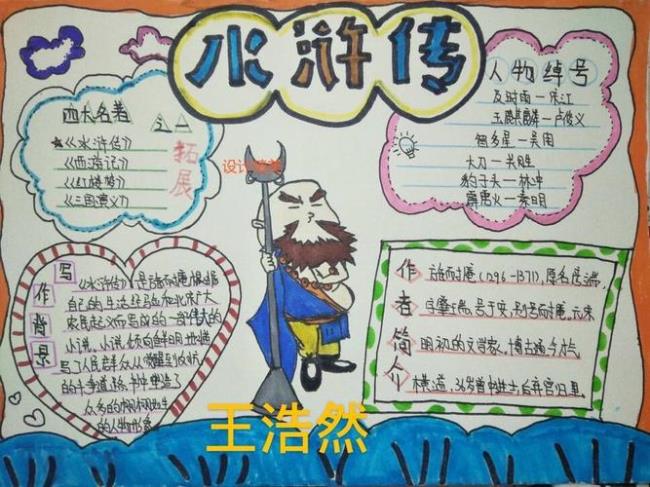 水浒传
四大名著
之一
拓展
《水浒传》
《西游记》
《红楼梦》
《三国演义》
人物绰号
及时雨一宋江
玉麒麟一卢俊义
智多星一吴用
大刀一关胜
豹子头一林冲
霹雳火一秦明
写作背景
《水浒传》是施耐庵根据
自己的生活经验和北宋广大
农民起义而写成的一部伟大的
小说。小说倾向鲜明地描
写了人民群众从觉醒到反抗
的斗争道路,
众多的栩栩如生
的人物形象
作者简介
施耐庵(1296-1371),原名彦端,
字肇瑞,号子安,别号耐庵。元末
明初的文学家。博古通今,
横溢,36岁曾中进士后弃官归里。
王浩然